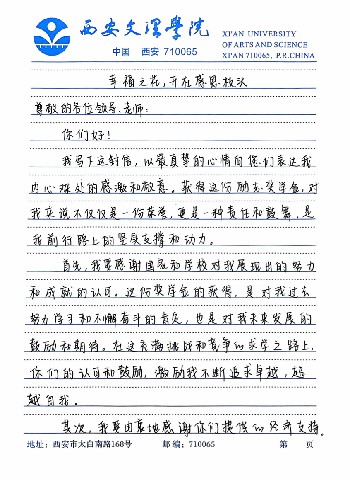 西安文理学院
XI'AN UNIVERSITY
OF ARTS AND SCIENCE
中国 西安 710065
XI'AN 710065, P.R.CHINA
幸福之花,开在感恩枝头
尊敬的各位领导、老师:
你们好!
我写下这封信,以最真挚的心情向您们表达我
内心深处的感激和敬意。获得这份励志奖学金,对
我来说不仅仅是一份荣誉,更是一种责任和鼓舞,是
我前行路上的坚定支撑和动力。
首先,我要感谢国家和学校对我展现出的努力
和成就的认可。这份奖学金的获得,是对我过去
努力学习和不懈奋斗的肯定,也是对我未来发展的
鼓励和期待。在这充满挑战和竞争的求学之路上,
你们的认可和鼓励,激励我不断追求卓越,超
越自我。
其次,我要由衷地感谢你们提供的经济支持。
地址:西安市太白南路168号 邮编:710065 第 页